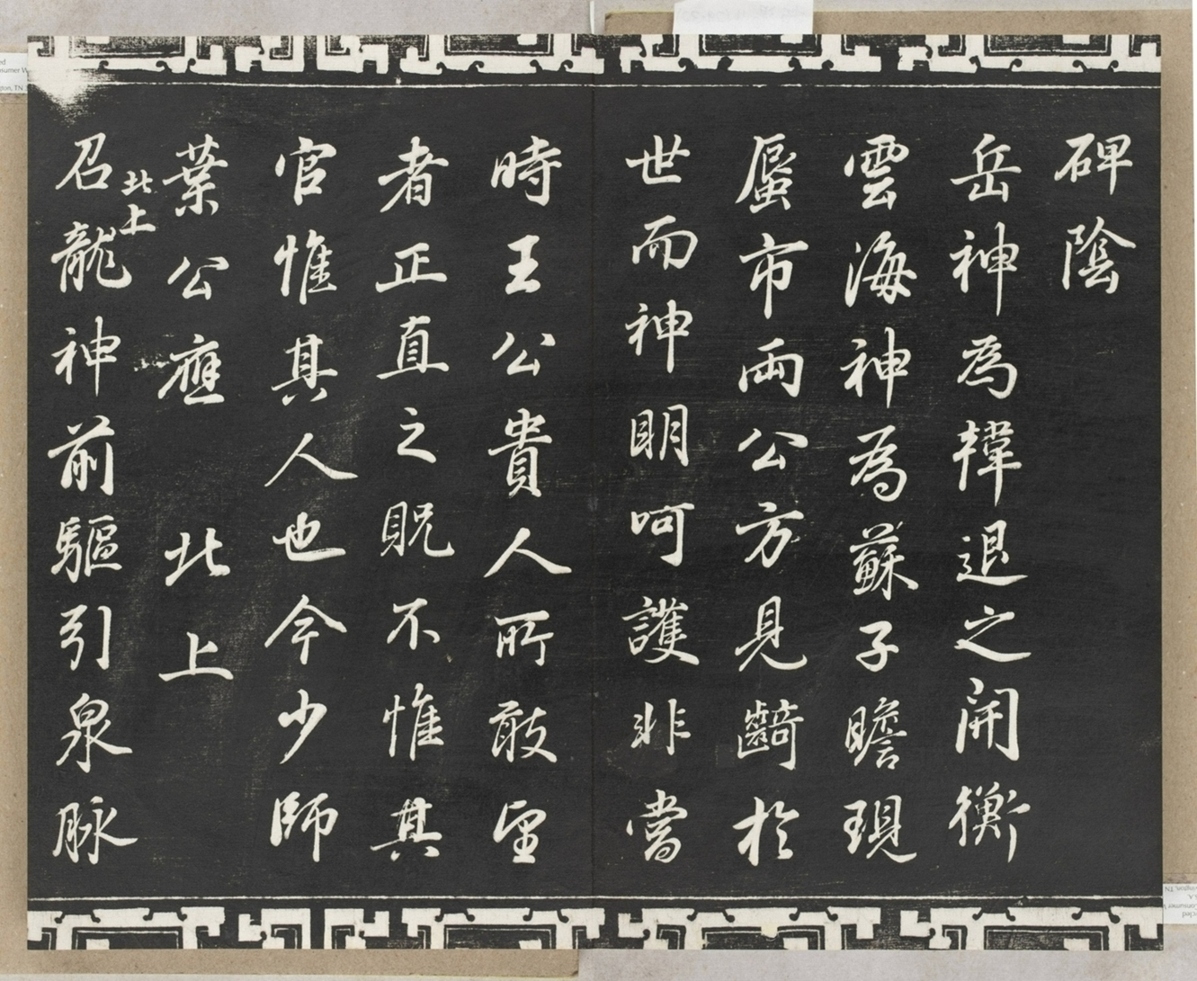 碑陰
岳神為韓退之開衡
雲海神為蘇子瞻現
蜃市兩公方見齮於
世而神明呵護非當
時王公貴人所敢望
者正直之貺不惟其
官惟其人也今少師
葉公應 北上
北上
召龍神前驅引泉脉